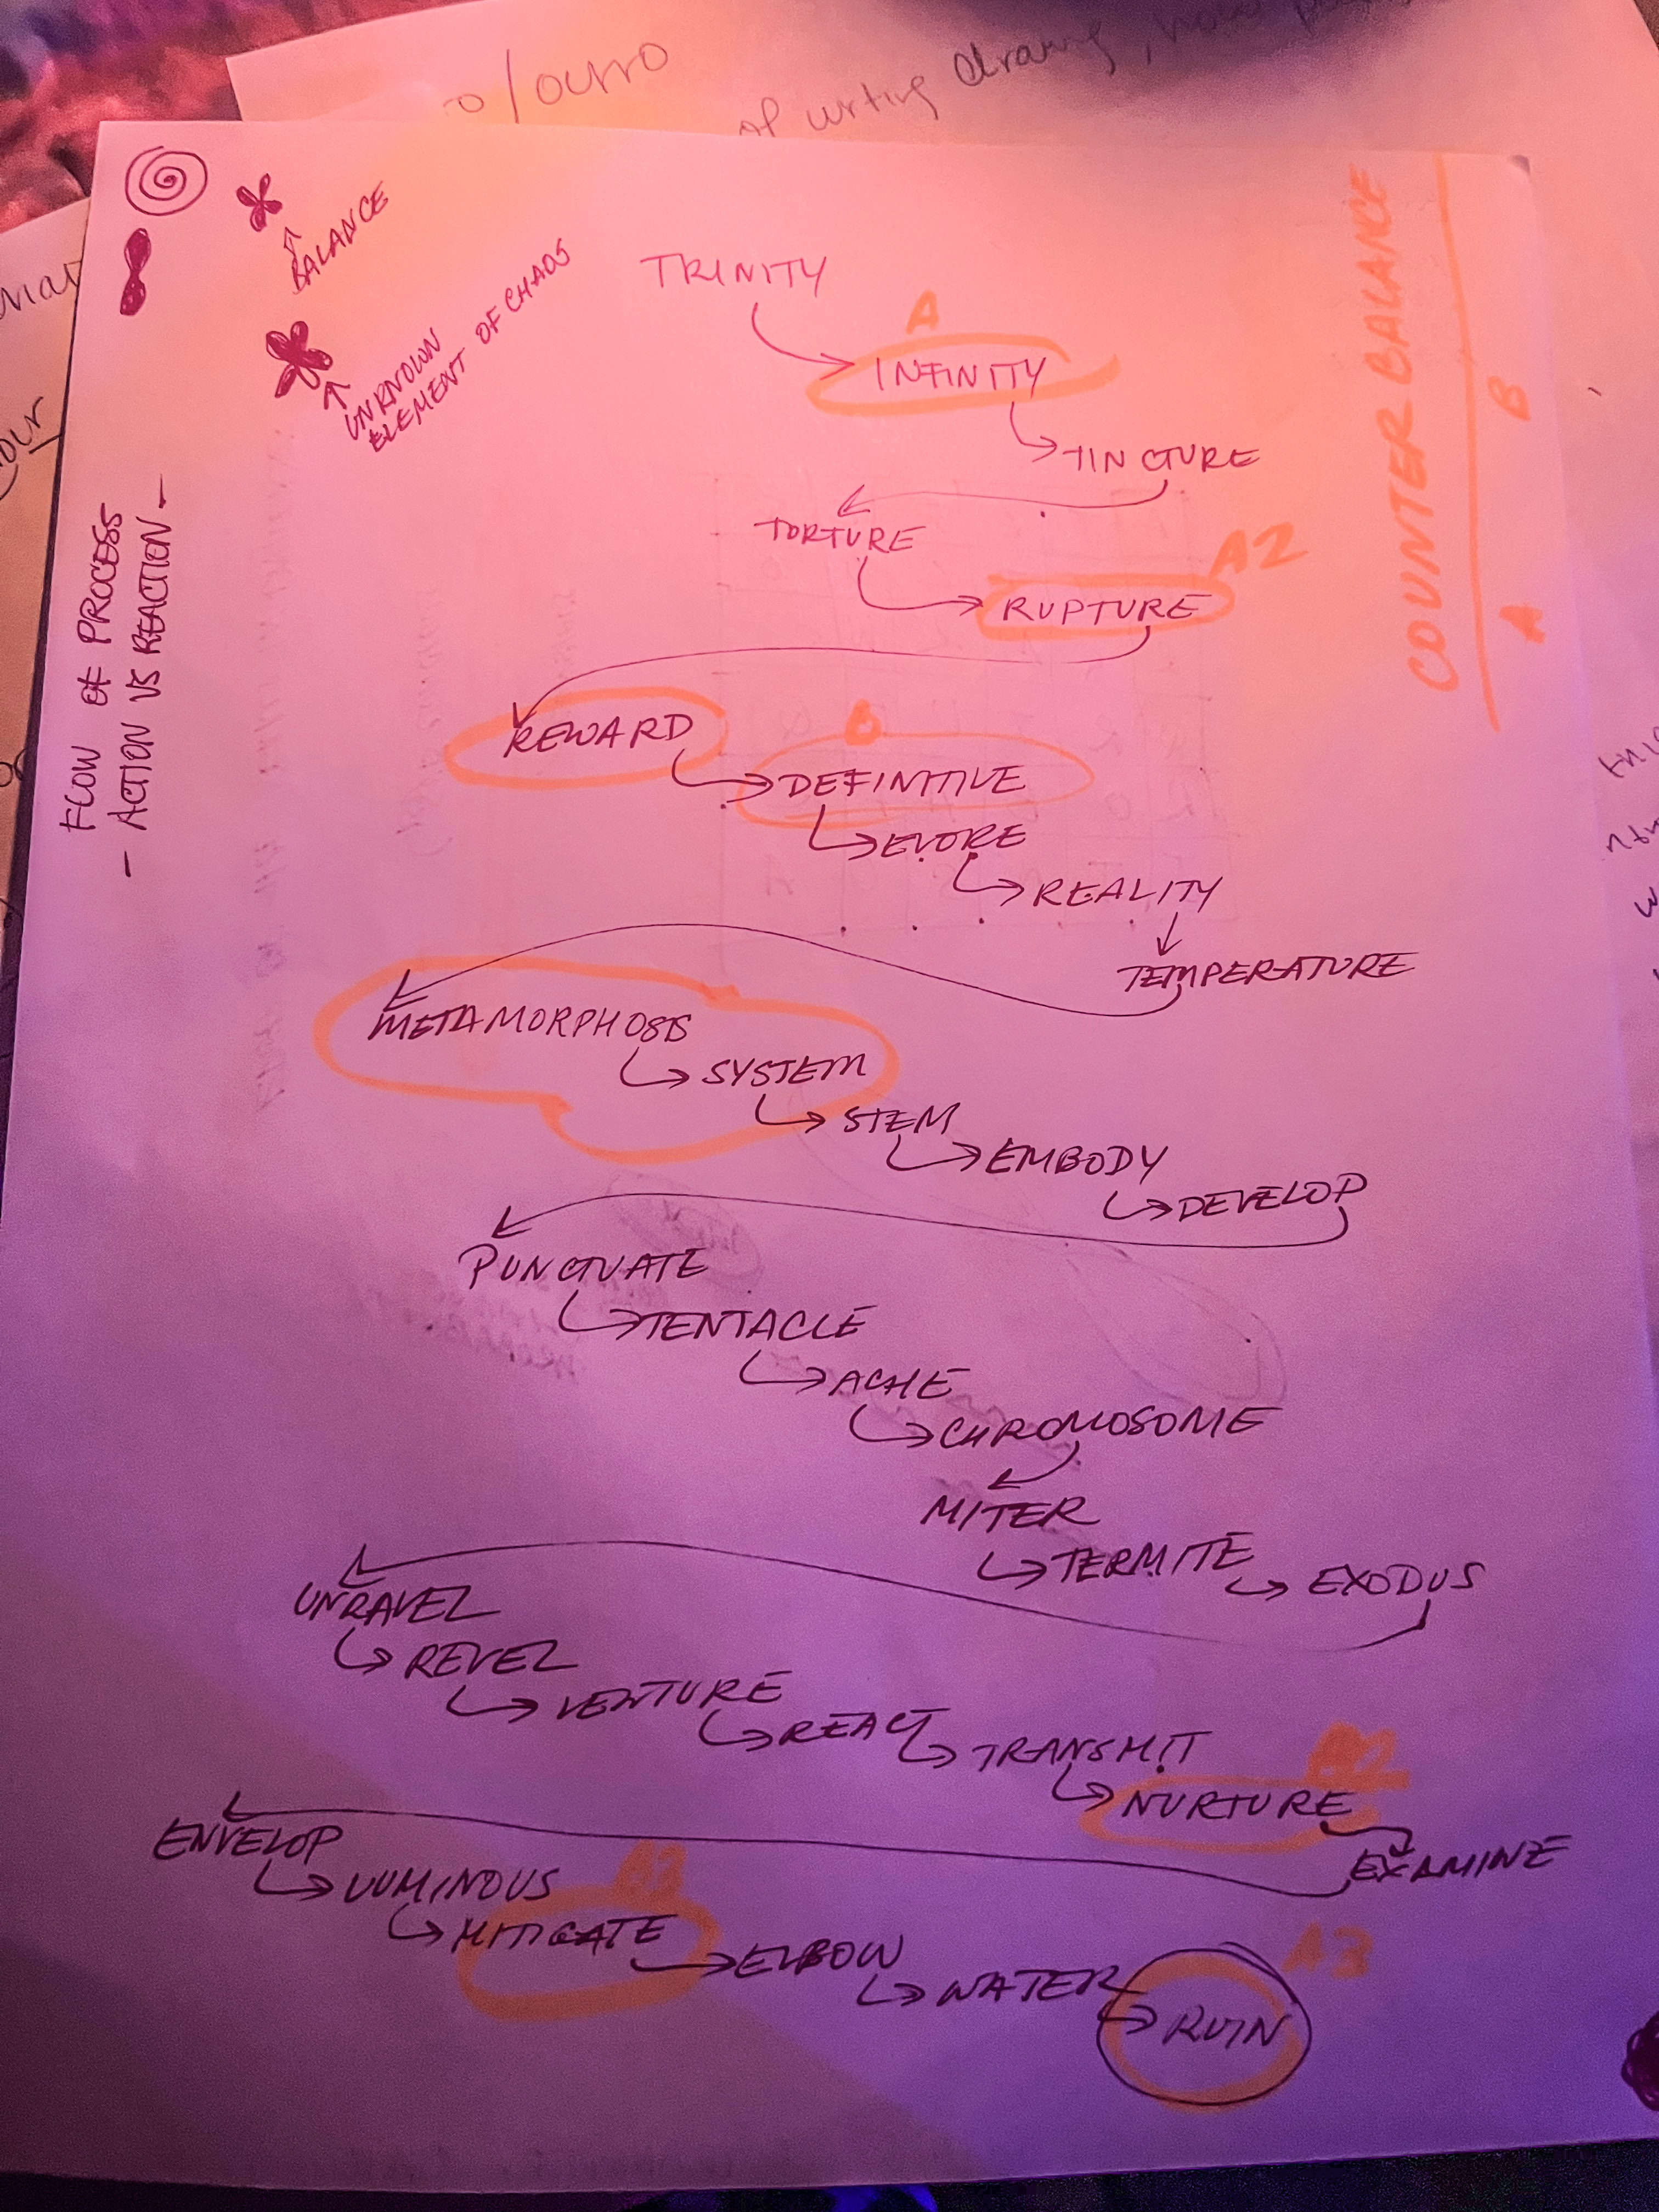 o/outro
of writing drawing,
BALANCE
UNKNOWN
ELEMENT OF CHAOS
FLOW OF PROCESS
- ACTION VS REACTION -
COUNTER BALANCE
A B
TRINITY
A
INFINITY
TINCTURE
TORTURE
A2
RUPTURE
REWARD
B
DEFINITIVE
EVOKE
REALITY
TEMPERATURE
METAMORPHOSIS
SYSTEM
STEM
EMBODY
DEVELOP
PUNCTUATE
TENTACLE
ACHE
CHROMOSOME
MITER
TERMITE
EXODUS
UNRAVEL
REVEL
VENTURE
REACT
TRANSMIT
B2
NURTURE
EXAMINE
ENVELOP
LUMINOUS
B3
MITIGATE
ELBOW
WATER
A3
RUIN